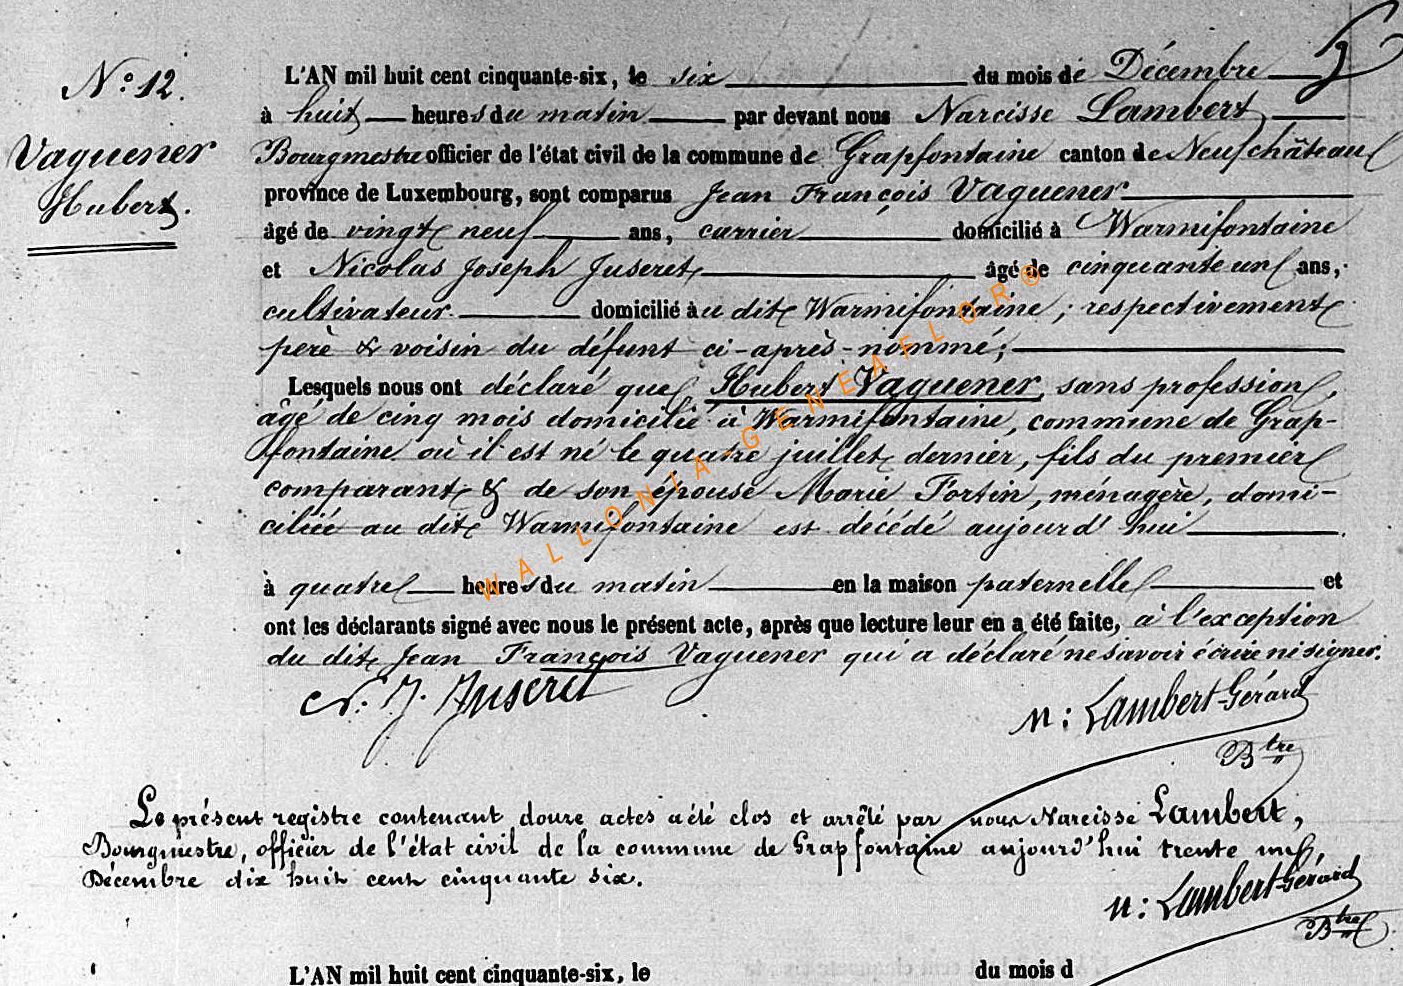 5
N.o 12.
Vaguener
Hubert.
L'AN mil huit cent cinquante-six, le six du mois de Décembre
à huit heures du matin par devant nous Narcisse Lambert,
Bourgmestre officier de l'état civil de la commune de Grapfontaine canton de Neufchâteau
province de Luxembourg, sont comparus Jean François Vaguener
âgé de vingt neuf ans, carrier domicilié à Warmifontaine
et Nicolas Joseph Juseret âgé de cinquante un ans,
cultivateur domicilié au dit Warmifontaine; respectivement
père & voisin du défunt ci-après-nommé;
Lesquels nous ont déclaré que Hubert Vaguener, sans profession,
âgé de cinq mois domicilié à Warmifontaine, commune de Grap-
fontaine où il est né le quatre juillet dernier, fils du premier
comparant & de son épouse Marie Fortin, ménagère, domi-
ciliée au dit Warmifontaine est décédé aujourd'hui
à quatre heures du matin en la maison paternelle et
ont les déclarants signé avec nous le présent acte, après que lecture leur en a été faite, à l'exception
du dit Jean François Vaguener qui a déclaré ne savoir écrire ni signer.
N. J. Juseret
n: Lambert-Gérard
Btre
Le présent registre contenant douze actes a été clos et arrêté par nous Narcisse Lambert,
Bourgmestre, officier de l'état civil de la commune de Grapfontaine aujourd'hui trente un
Décembre dix huit cent cinquante six.
n: Lambert-Gérard
Btre
L'AN mil huit cent cinquante-six, le du mois d
WALLONIA-GENEAFLOR®